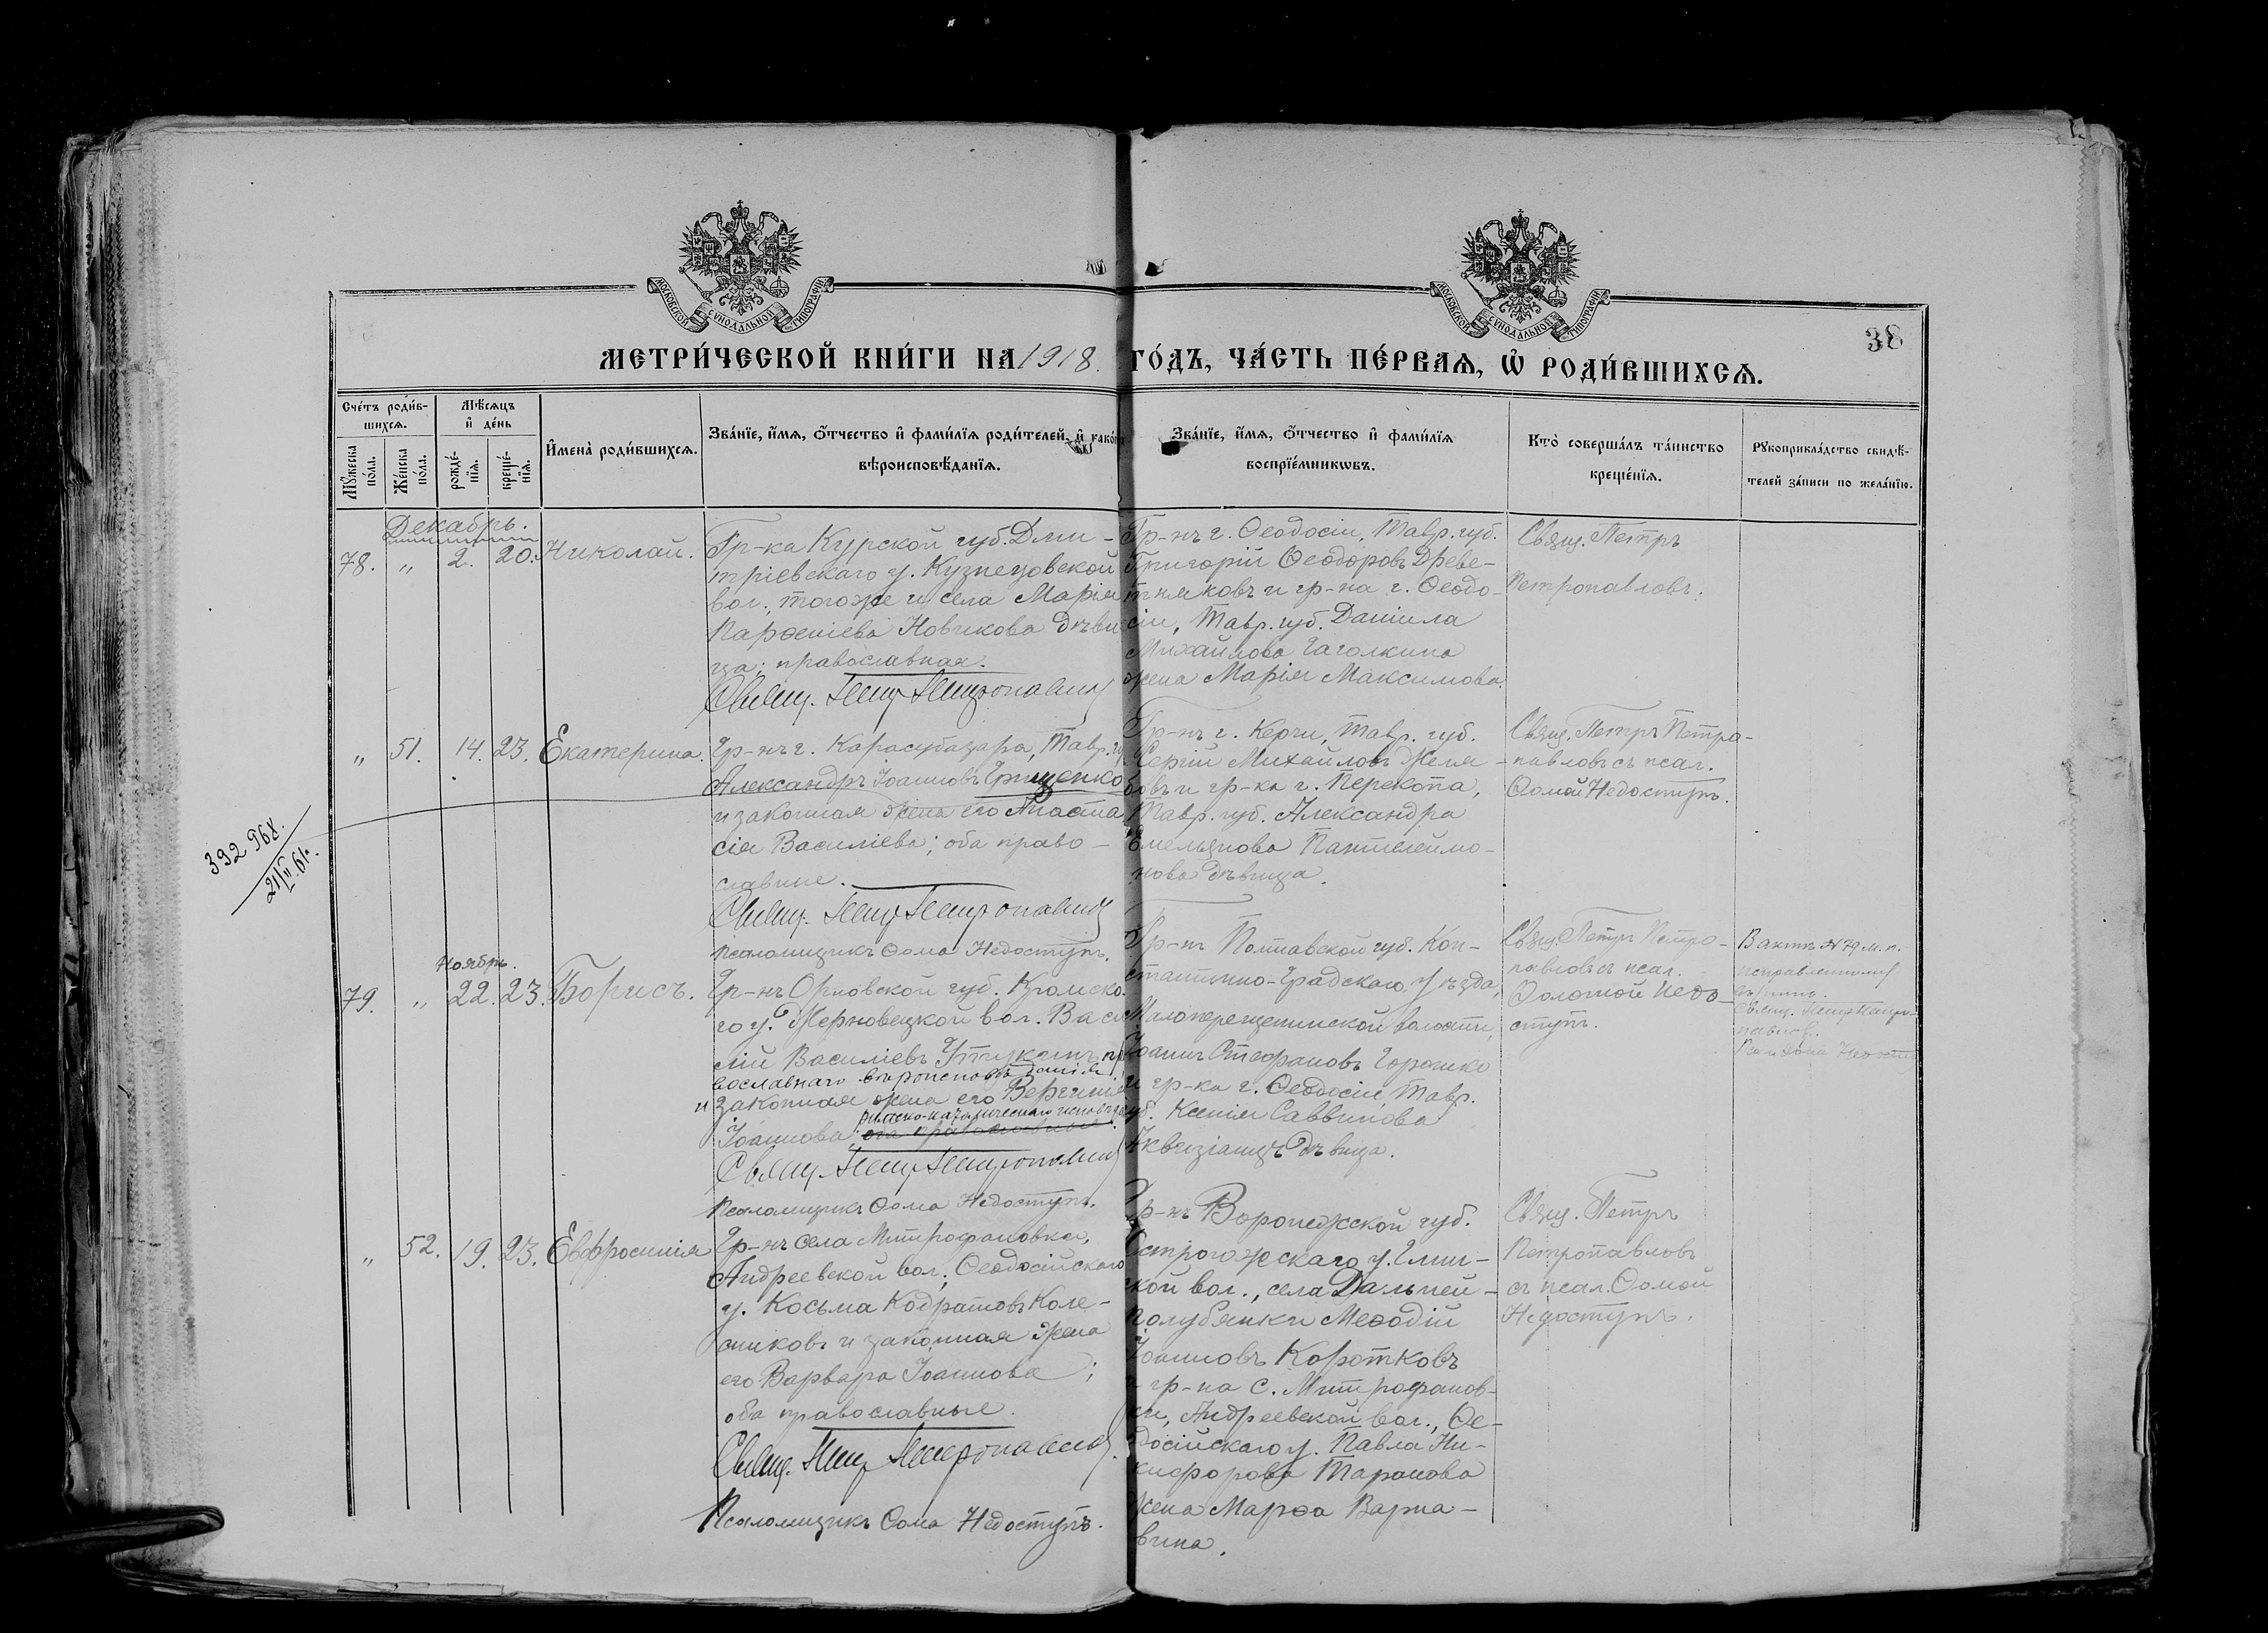 МОСКОВСКОЙ СѴНОДАЛЬНОЙ ТИПОГРАФІИ
МОСКОВСКОЙ СѴНОДАЛЬНОЙ ТИПОГРАФІИ
38
МЕТРИ́ЧЕСКОЙ КНИ́ГИ НА 1918. ГО́ДЪ, ЧА́СТЬ ПЕ́РВАѦ, Ѽ РОДИ́ВШИХСѦ.
Сче́тъ роди́в-
шихсѧ.
Мꙋжеска по́ла.
Же́нска по́ла.
Мѣ́сѧцъ и҆ де́нь
рожде́-нїѧ.
креще́-нїѧ.
И҆мена̀ роди́вшихсѧ.
Зва́нїе, и҆́мѧ, ѻ҆́тчество и҆ фами́лїѧ роди́телей, и҆ како́
вѣроисповѣ́данїѧ.
Зва́нїе, и҆́мѧ, ѻ҆́тчество и҆ фами́лїѧ
воспрїе́мникѡвъ.
Кто̀ соверша́лъ та́инство
креще́нїѧ.
Рꙋкоприкла́дство свидѣ́-
телей за́писи по жела́нїю.
Декабрь.
78. " 2. 20. Николай.
Гр-ка Курской губ. Дми-
тріевскаго у. Кузнецовской
вол., того же и села Марія
Парѳеніева Новикова дѣви
ца; православная.
Свящ. Петр Петропавлов
Гр-нъ г. Ѳеодосіи, Тавр. губ.
Григорій Ѳеодоровъ Древе-
тняковъ и гр-на г. Ѳеодо-
сіи, Тавр. губ. Даніила
Михайлова Гаголкина
жена Марія Максимова.
Свящ. Петръ
Петропавловъ.
" 51. 14. 23. Екатерина.
Гр-нъ г. Карасубазара, Тавр. гу
Александръ Іоанновъ Грищенко
и законная жена его Анаста
сія Василіева; оба право-
славные.
Свящ. Петр Петропавлов
Псаломщикъ Ѳома Недоступъ.
Гр-нъ г. Керчи, Тавр. губ.
Сергій Михайловъ Желя-
бовъ и гр-ка г. Перекопа,
Тавр. губ. Александра
Емельянова Пантелеймо-
нова дѣвица.
Свящ. Петръ Петро-
павловъ съ псал.
Ѳомой Недоступъ.
392968.
21/II.61г.
Ноябрь.
79. " 22. 23. Борисъ.
Гр-нъ Орловской губ. Кромска
го у. Жерновецкой вол. Васи
лій Василіевъ Утукинъ, пр
вославнаго вѣроисповѣданія
и законная жена его Вергинія
римско-католическаго исповѣд
Іоаннова; оба православные.
Свящ. Петр Петропавлов
Псаломщикъ Ѳома Недоступъ.
Гр-нъ Полтавской губ. Кон-
стантино-Градскаго уѣзда,
Малоперещепинской волости,
Іоаннъ Стефановъ Горошко
и гр-ка г. Ѳеодосіи, Тавр.
губ. Ксенія Саввинова
дѣвица.
Свящ. Петръ Петро-
павловъ съ псал.
Ѳомой Недо-
ступъ.
В актѣ № 79 м. п.
исправленному
вѣрить.
Свящ. Петр Петро-
павлов.
Псал. Ѳома Недост
" 52. 19. 23. Евфросинія
Гр-нъ села Митрофановки,
Андреевской вол., Ѳеодосійскаго
у. Косьма Кодратовъ Коле-
сниковъ и законная жена
его Варвара Іоаннова;
оба православные.
Свящ. Петр Петропавлов.
Псаломщикъ Ѳома Недоступъ.
Гр-нъ Воронежской губ.
Острогожскаго у. Гнин-
ской вол., села Дальней-
Полубянки Меѳодій
Іоанновъ Коротковъ
и гр-на с. Митрофанов-
ки, Андреевской вол., Ѳе-
одосійскаго у. Павла Ни-
кифорова Таранова
жена Марѳа Варна-
вина.
Свящ. Петръ
Петропавловъ
съ псал. Ѳомой
Недоступъ.